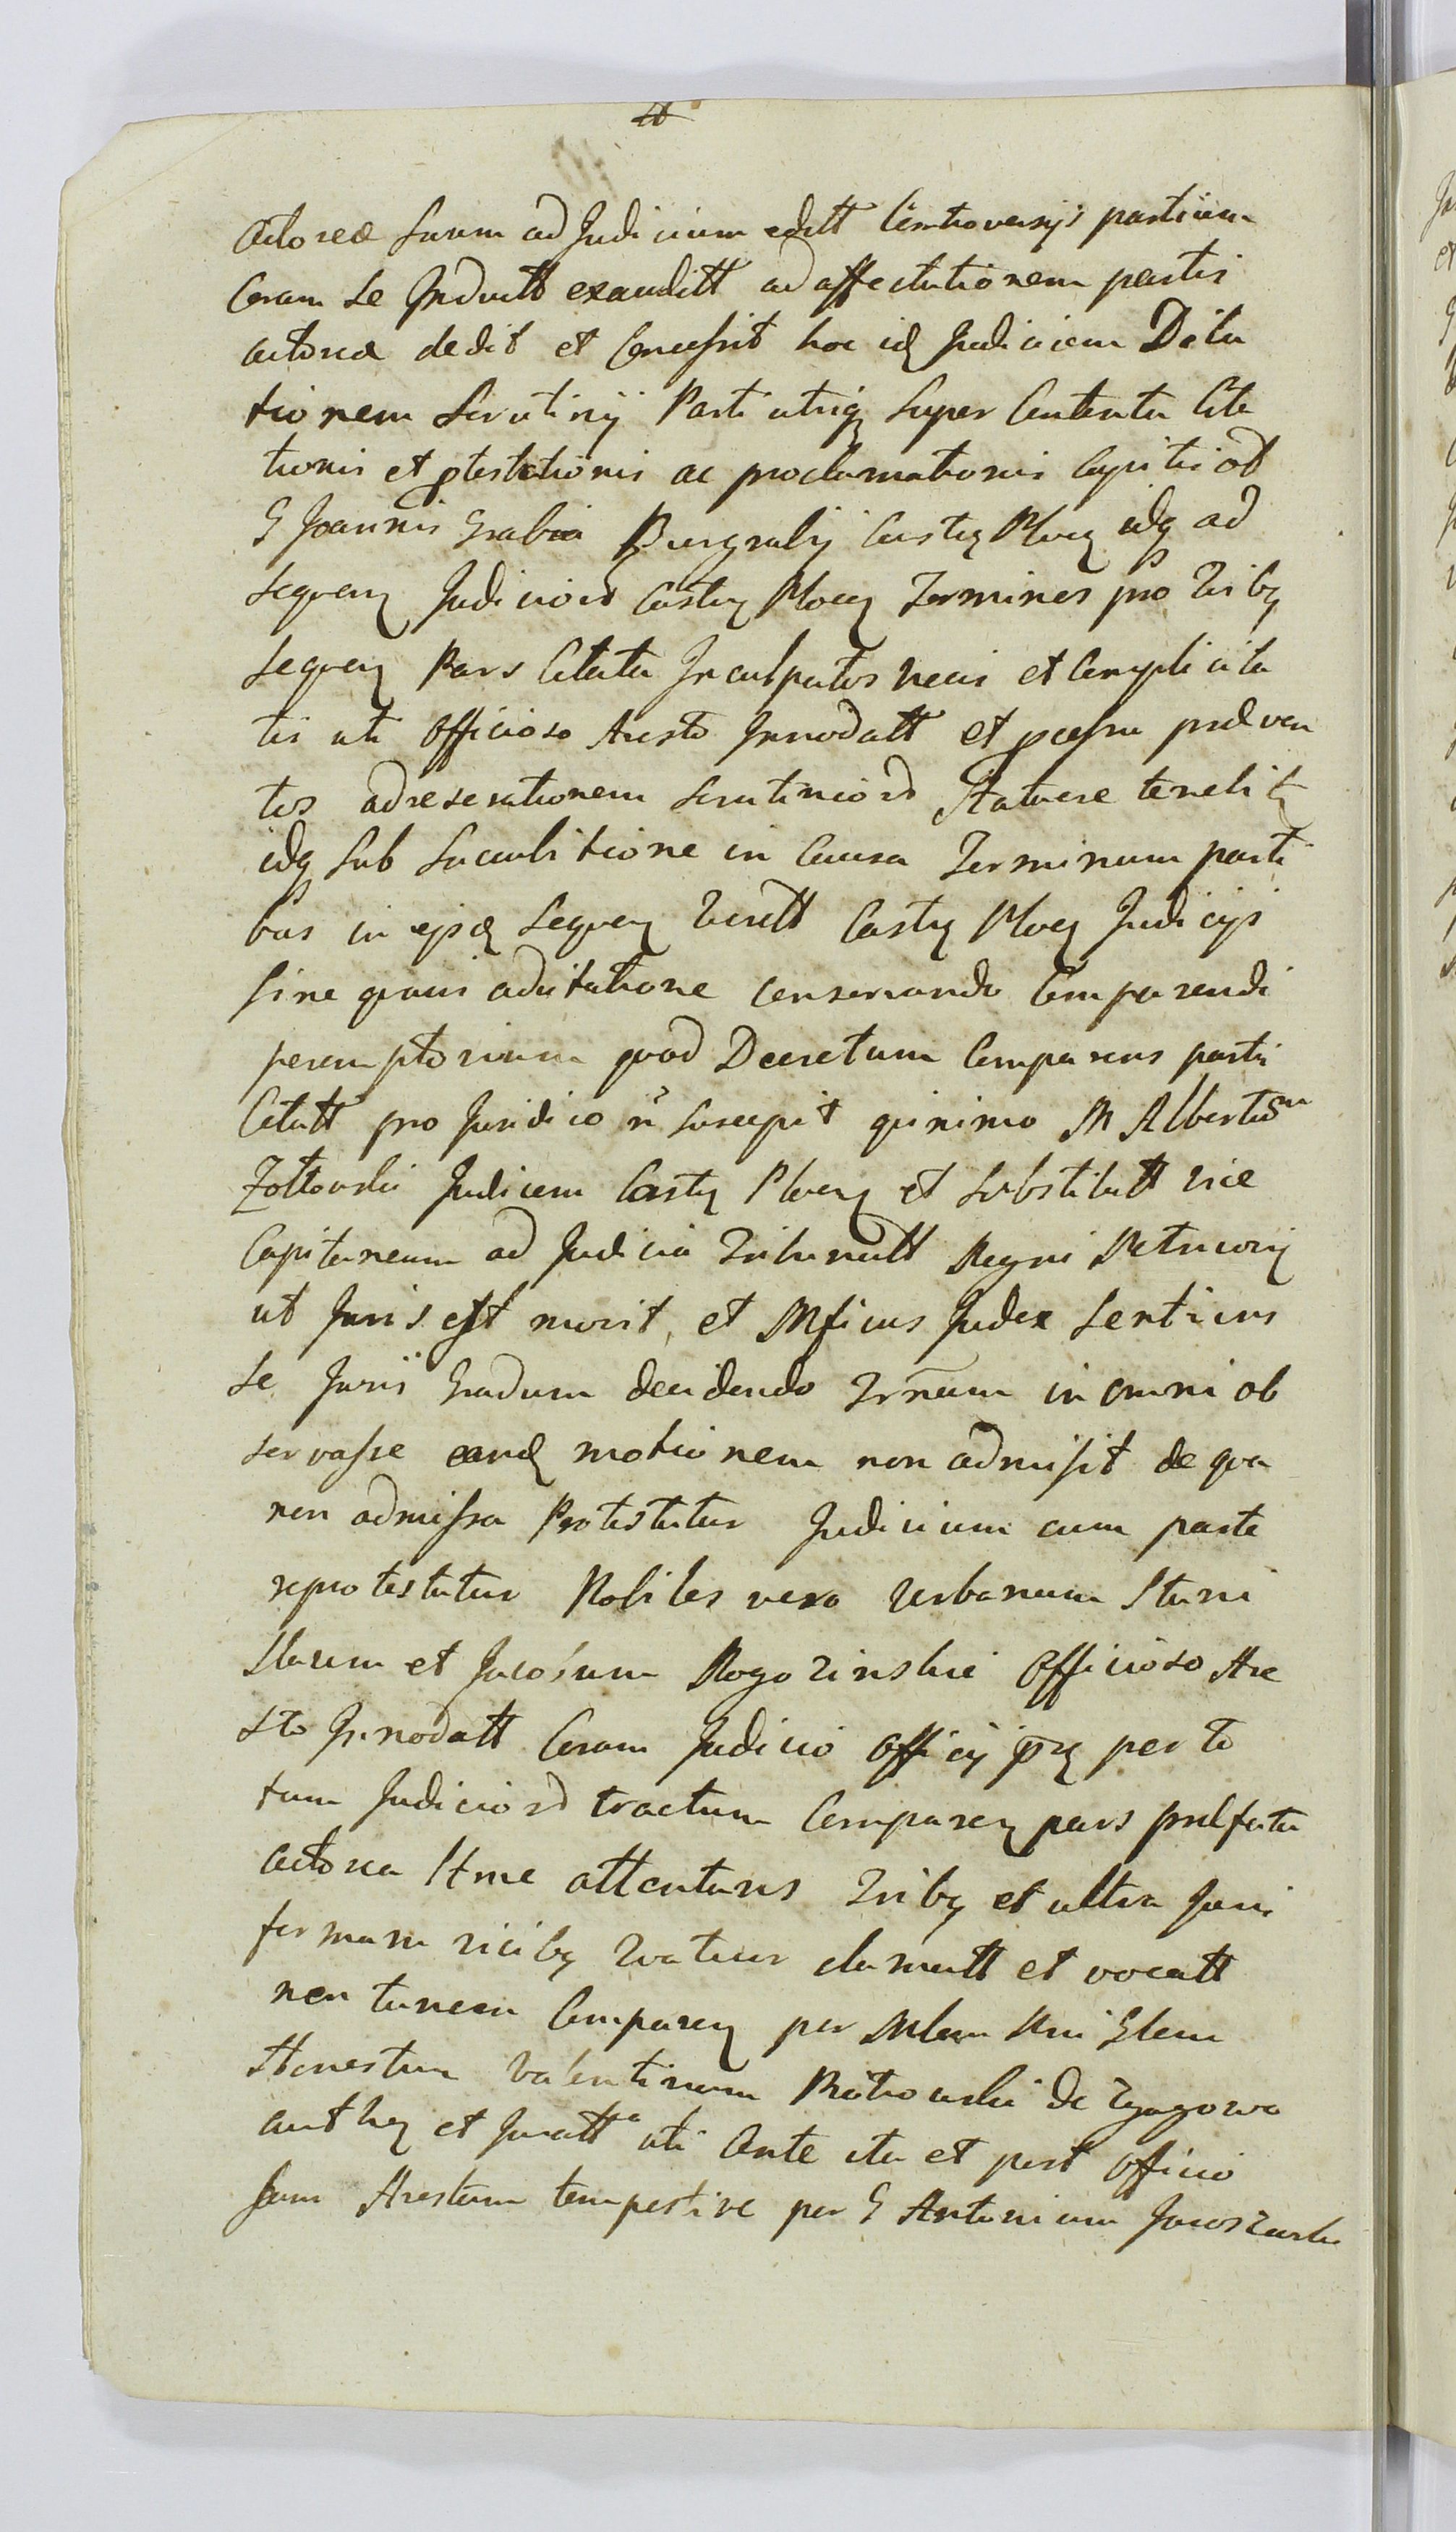 Actoreæ suum ad Judicium editt Controversijs partium
Coram se Induitt exauditt ad affectationem partis
actoreæ dedit et Concessit hoc idq Judicium Dila
tionem Scrutinij Parti utriq super Contenta Cita
tionis et ptestationis ac proclamationis Capitis ob
G Joannis Grabia Burgrabij Castrq Plocq idq ad
sequenq Judiciord Castrq Plocq Terminos pro Tribq
sequenq Pars Citata Inculpatos necis et Complicita
tis uti officioso Aresto Innodatt et pcessu præven
tos ad reserationem Scrutiniord Statuere tenebitq
idq sub succubitione in Causa Terminum parti
bus in ejsdq sequenq Terestt Castrq Plocq Judicijs
sine quavis adcitatione conservando Comparendi
peremptorium quod Decretum Comparens partis
Citatt pro Juridico ñ suscepit quinimo M Albertum
Zołtowski Judicem Castrq Plocq et Substitutt vice
Capitaneum ad Judicia Tribunatt Regni Petricovq
ut Juris est movit, et Mficus Judex sentiens
se Juris Gradum decidendo Trñum in omni ob
servasse eandq motionem non admisit de qua
non admissa Protestatur Judicium cum parte
reprotestatur Nobiles vero Urbanum Stani
slaum et Jacobum Rogozinskie officioso Are
sto Innodatt Coram Judicio officij pñq per to
tum Judiciord tractum Comparenq pars præfata
actorea Itme attentans Tribq et ultra Juris
formam vicibq vatur clamatt et vocatt
non tamen Comparenq per Mlem Rni Glem
Honestum Valentinum Piotrowski de Zgagowo
authq et Juratt uti Ante ita et post officio
sum Arestum tempestive per G Antonium